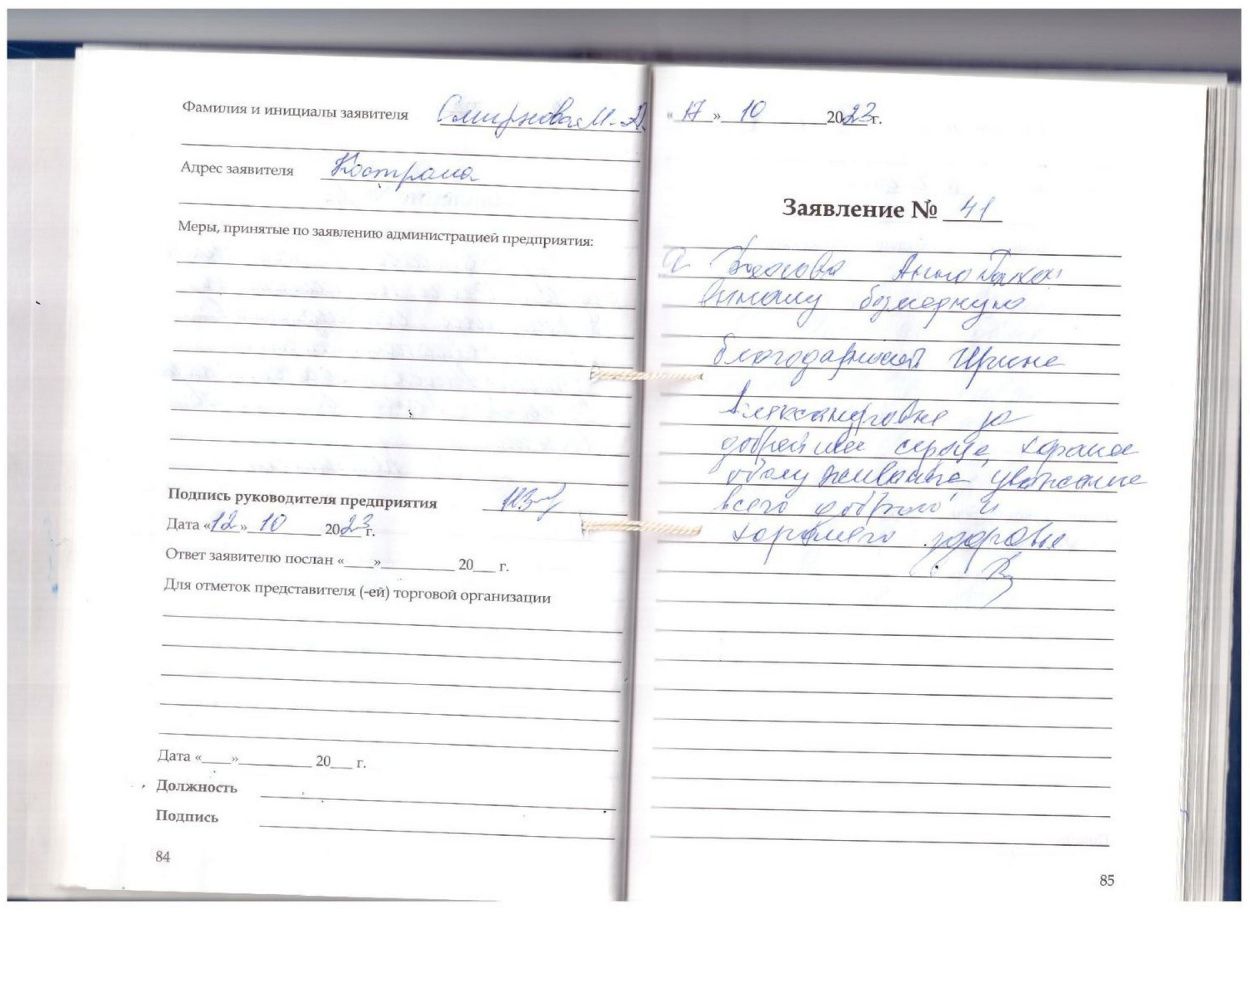 Фамилия и инициалы заявителя Смирнова М. Д.
Адрес заявителя Кострома
Меры, принятые по заявлению администрацией предприятия:
Подпись руководителя предприятия
Дата «12» 10 2023 г.
Ответ заявителю послан «___»_________ 20___ г.
Для отметок представителя (-ей) торговой организации
Дата «___»_________ 20___ г.
Должность
Подпись
84
«17» 10 2023 г.
Заявление № 41
Анна
безмерную
благодарность Ирине
Александровне за
добрейшее сердце, хорошее
обслуживание, уважение
всего доброго и
хорошего здоровье
85